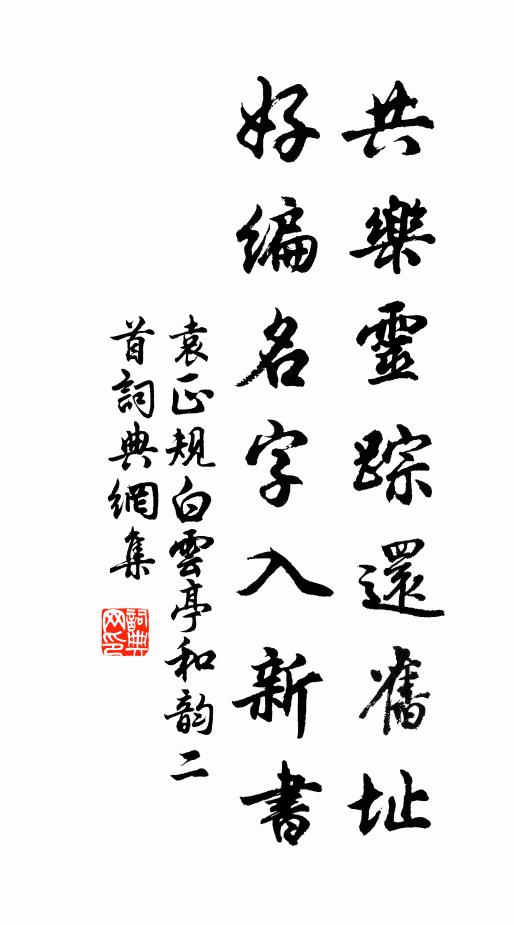 共樂靈踪還舊址
好編名字入新書
袁正規白雲亭和韵二
首詞典網集
詞典
网印